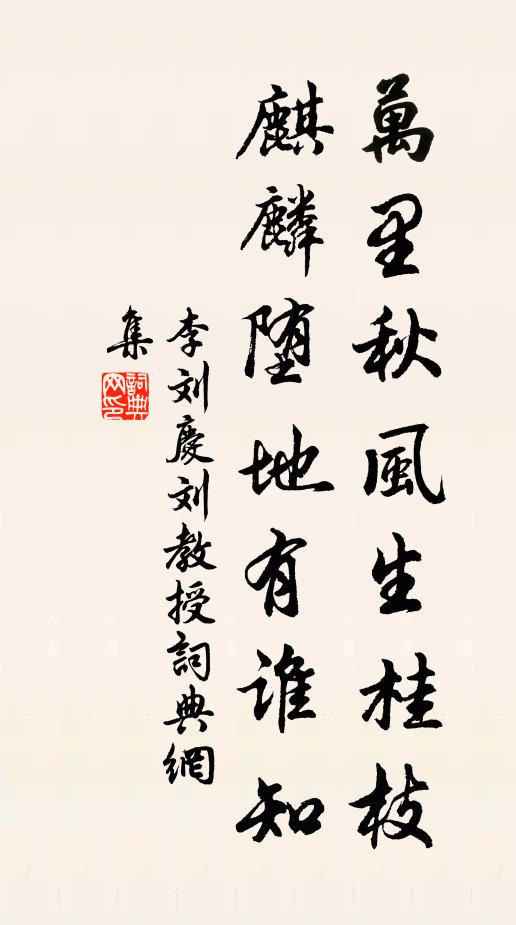 萬里秋風生桂枝
麒麟堕地有谁知
李刘慶刘教授詞典網
集
詞典
网印